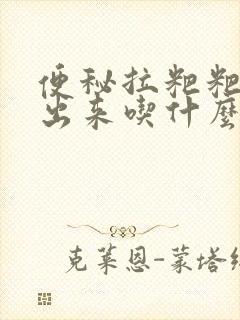 便秘拉粑粑
出来喫什麼
克莱恩-蒙塔